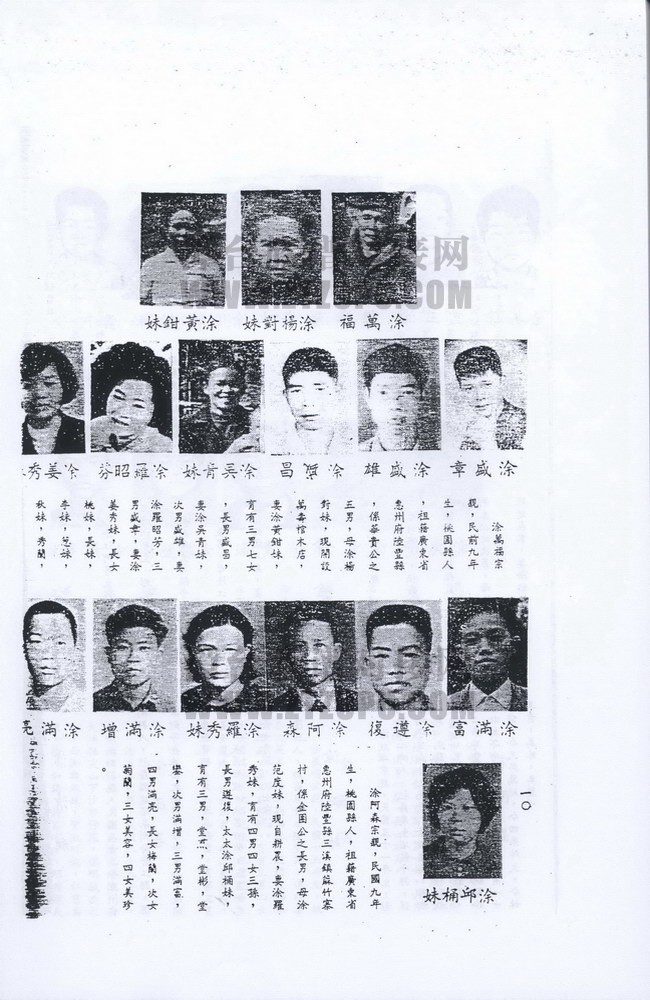 涂萬福
涂楊對妹
涂黃鉗妹
涂盛章
涂盛雄
涂盛昌
涂吳青妹
涂羅昭芬
涂姜秀
涂萬福宗
親，民前九年
生，桃園縣人
，祖籍廣東省
惠州府陸豐縣
，係華貴公之
三男，母涂楊
對妹，現開設
萬壽棺木店，
妻涂黃鉗妹，
育有三男七女
，長男盛昌，
妻涂吳青妹，
次男盛雄，妻
涂羅昭芳，三
男盛章，妻涂
姜秀妹，長女
桃妹，長妹，
李妹，
秋妹，秀蘭，
涂滿富
涂遵復
涂阿森
涂羅秀妹
涂滿增
涂滿亮
一〇
涂邱桶妹
涂阿森宗親，民國九年
生，桃園縣人，祖籍廣東省
惠州府陸豐縣三溪鎮蘇竹寨
村，係金困公之長男，母涂
范度妹，現自耕農，妻涂羅
秀妹，育有四男四女三孫，
長男遵復，太太涂邱桶妹，
育有三男，堂杰，堂彬，堂
鑾，次男滿增，三男滿富，
四男滿亮，長女梅蘭，次女
菊蘭，三女美容，四女美珍
。
WWW.XTZSPU.COM